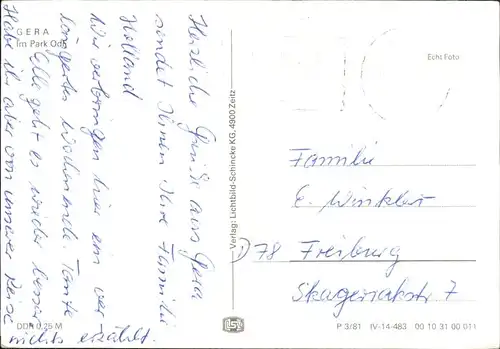 GERA
Im Park Od
Herzliche Grüße aus Gera
sendet Ihnen Ihre Familie
Holland
Wir verbringen hier ein ver
längertes Wochenende. Tante
Elle geht es wieder besser
Habe ihr aber von unserer Reise
nichts erzählt.
DDR 0,25 M
Verlag: Lichtbild-Schincke KG, 4900 Zeitz
Echt Foto
Familie
E. Winkler
D 78 Freiburg
Skagerrakstr. 7
P 3/81 IV-14-483 00 10 31 00 011